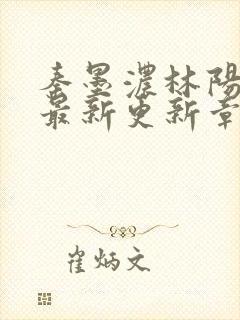 秦墨濃林陽
最新更新章
崔炳文